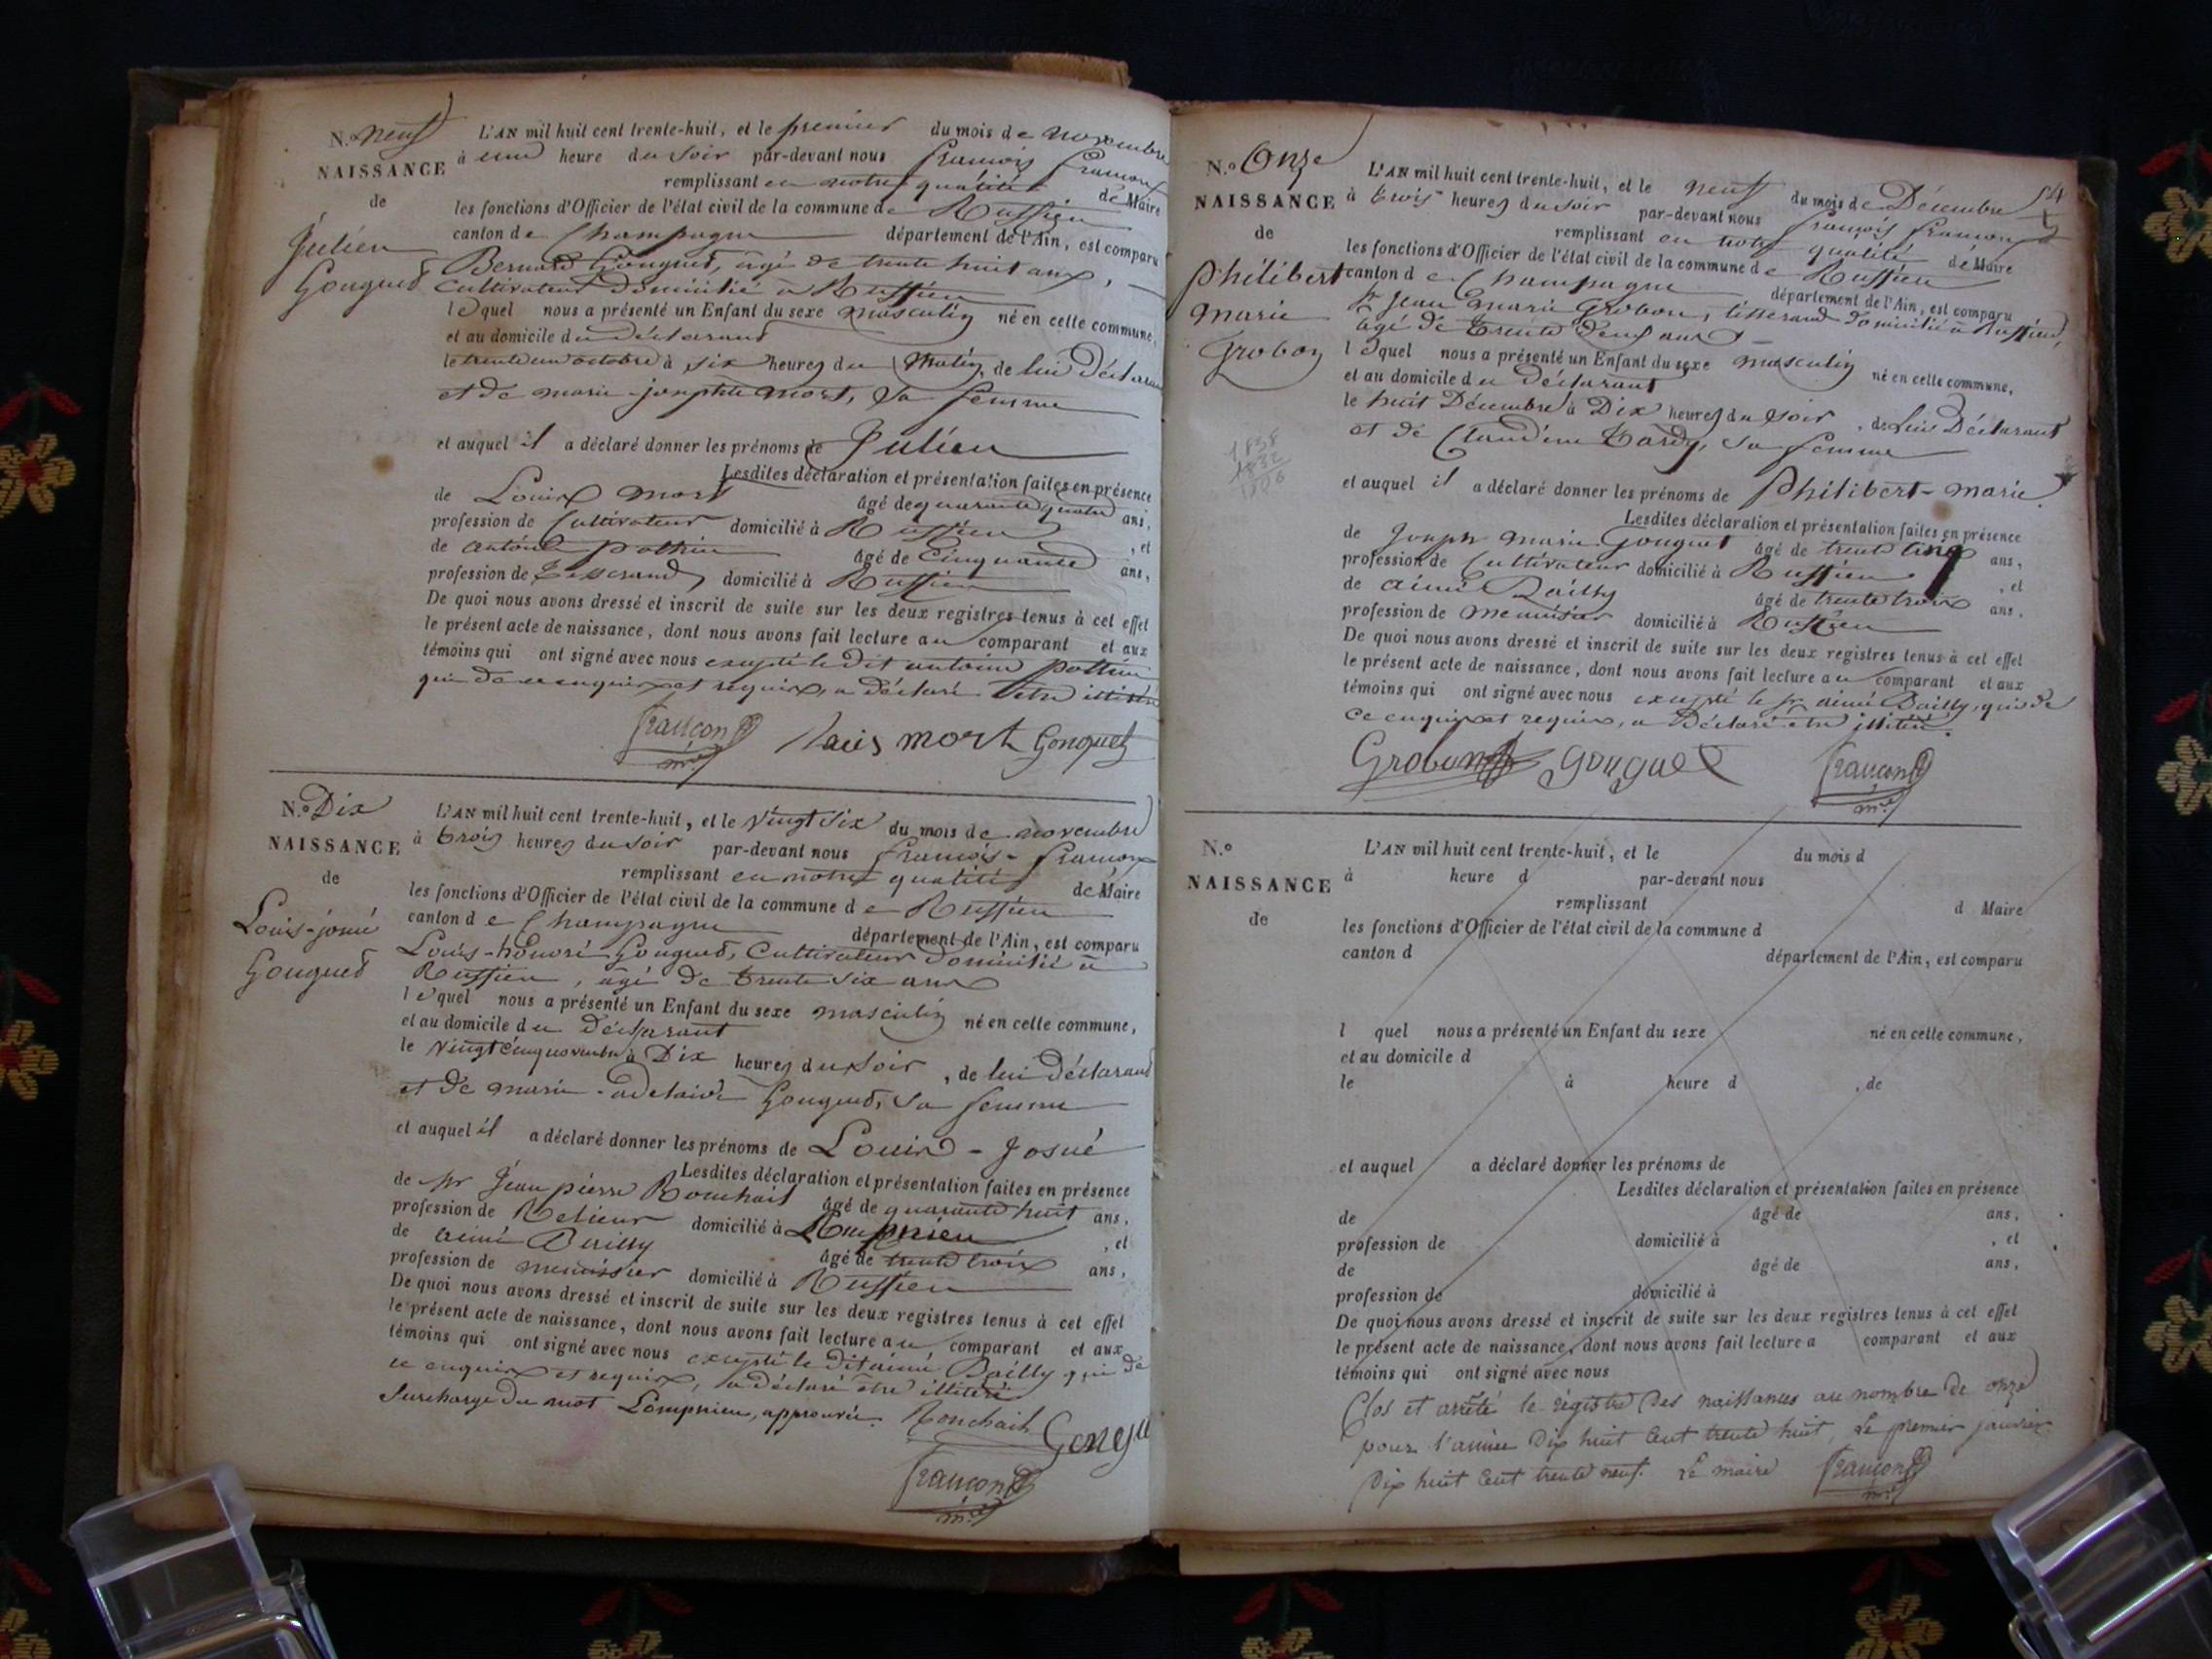 N.o neuf
NAISSANCE
de
Julien
Gouguet
L'AN mil huit cent trente-huit, et le premier du mois de novembre
à une heure du soir par-devant nous françois françon
remplissant en notre qualité de Maire
les fonctions d'Officier de l'état civil de la commune de Ruffieu
canton de Champagne département de l'Ain, est comparu
Bernard Gouguet, âgé de trente huit ans,
Cultivateur domicilié à Ruffieu
lequel nous a présenté un Enfant du sexe masculin né en cette commune,
et au domicile du déclarant
le trente un octobre à six heures du Matin, de lui Déclarant
et de marie-josephte mort, Sa femme
et auquel il a déclaré donner les prénoms de Julien
Lesdites déclaration et présentation faites en présence
de Louis mort âgé de quarante quatre ans,
profession de Cultivateur domicilié à Ruffieu , et
de antoine pothin âgé de Cinquante ans,
profession de Tisserand domicilié à Ruffieu
De quoi nous avons dressé et inscrit de suite sur les deux registres tenus à cet effet
le présent acte de naissance, dont nous avons fait lecture au comparant et aux
témoins qui ont signé avec nous excepté le dit antoine pothin
qui de ce enquis et requis, a déclaré être illitéré
françon Mre louis mort Gouguet
N.o Dix
NAISSANCE
de
Louis-josué
Gouguet
L'AN mil huit cent trente-huit, et le vingt six du mois de novembre
à trois heures du soir par-devant nous françois-françon
remplissant en notre qualité de Maire
les fonctions d'Officier de l'état civil de la commune de Ruffieu
canton de Champagne département de l'Ain, est comparu
Louis-honoré Gouguet, Cultivateur domicilié à
Ruffieu, âgé de trente six ans
lequel nous a présenté un Enfant du sexe masculin né en cette commune,
et au domicile du déclarant
le vingt cinq novembre à Dix heures du soir , de lui déclarant
et de marie-adelaide Gouguet, sa femme
et auquel il a déclaré donner les prénoms de Louis-Josué
Lesdites déclaration et présentation faites en présence
de Sr Jean pierre Ronchait âgé de quarante huit ans,
profession de Relieur domicilié à Lompnieu , et
de aimé Bailly âgé de trente trois ans,
profession de menuisier domicilié à Ruffieu
De quoi nous avons dressé et inscrit de suite sur les deux registres tenus à cet effet
le présent acte de naissance, dont nous avons fait lecture au comparant et aux
témoins qui ont signé avec nous excepté le dit aimé Bailly qui de
ce enquis et requis, a déclaré être illitéré
Surcharge du mot Lompnieu, approuvée. Ronchait
françon Mre
54
N.o Onze
NAISSANCE
de
Philibert
marie
Grobon
L'AN mil huit cent trente-huit, et le neuf du mois de Décembre
à trois heures du soir par-devant nous françois françon
remplissant en notre qualité de Maire
les fonctions d'Officier de l'état civil de la commune de Ruffieu
canton de Champagne département de l'Ain, est comparu
Sr Jean marie Grobon, tisserand domicilié à Ruffieu,
âgé de trente deux ans
lequel nous a présenté un Enfant du sexe masculin né en cette commune,
et au domicile du déclarant
le huit Décembre à Dix heures du soir , de lui Déclarant
et de Claudine Tardy, sa femme
et auquel il a déclaré donner les prénoms de Philibert-marie
Lesdites déclaration et présentation faites en présence
de Joseph marie Gouguet âgé de trente cinq ans,
profession de Cultivateur domicilié à Ruffieu , et
de aimé Bailly âgé de trente trois ans,
profession de menuisier domicilié à Ruffieu
De quoi nous avons dressé et inscrit de suite sur les deux registres tenus à cet effet
le présent acte de naissance, dont nous avons fait lecture au comparant et aux
témoins qui ont signé avec nous excepté le Sr aimé Bailly, qui de
ce enquis et requis, a Déclaré être illitéré.
Grobon gouguet françon Mre
1838
1832
N.o
NAISSANCE
de
L'AN mil huit cent trente-huit, et le du mois d
à heure d par-devant nous
remplissant d Maire
les fonctions d'Officier de l'état civil de la commune d
canton d département de l'Ain, est comparu
l quel nous a présenté un Enfant du sexe né en cette commune,
et au domicile d
le à heure d , de
et auquel a déclaré donner les prénoms de
Lesdites déclaration et présentation faites en présence
de âgé de ans,
profession de domicilié à , et
de âgé de ans,
profession de domicilié à
De quoi nous avons dressé et inscrit de suite sur les deux registres tenus à cet effet
le présent acte de naissance, dont nous avons fait lecture a comparant et aux
témoins qui ont signé avec nous
Clos et arrêté le régistre des naissances au nombre de onze
pour l'année Dix huit Cent trente huit, Le premier janvier
Dix huit Cent trente neuf. Le maire françon Mre